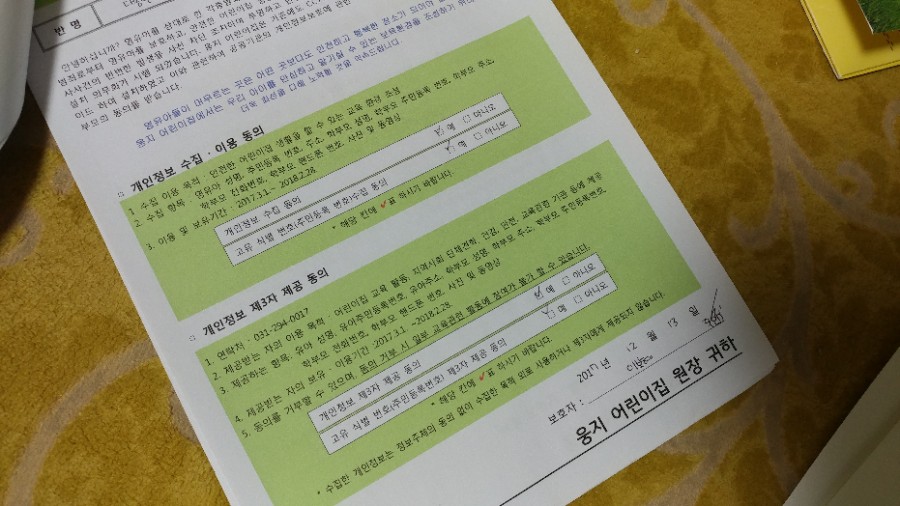 반 명
안녕하십니까? 영유아를 상대로 한 각종
범죄로부터 영유아를 보호하고, 안전한 어린이집
사사건의 빈번한 발생을 사전 차단 조치하여 투명하고
설치 의무화가 시행 되었습니다. 웅지 어린이집은 기존에도
이드 하여 설치하였고 이와 관련하여 공공기관의 개인정보보호에 관한
부모의 동의를 받습니다.
영유아들이 머무르는 곳은 어떤 곳보다도 안전하고 행복한 장소가 되어야
웅지 어린이집에서는 우리 아이를 안심하고 맡기실 수 있는 보육환경을 조성하기 위해
더욱 최선을 다해 노력할 것을 약속드립니다.
□ 개인정보 수집 · 이용 동의
1. 수집 이용 목적 : 안전한 어린이집 생활을 할 수 있는 교육 환경 조성
2. 수집 항목 : 영유아 성명, 주민등록 번호, 주소, 학부모 성명, 학부모 주민등록 번호, 학부모 주소,
학부모 전화번호, 학부모 핸드폰 번호, 사진 및 동영상
3. 이용 및 보유기간 : 2017.3.1~ 2018.2.28.
개인정보 수집 동의 ☑ 예 □ 아니오
고유 식별 번호(주민등록 번호)수집 동의 ☑ 예 □ 아니오
* 해당 칸에 ✓표 하시기 바랍니다.
□ 개인정보 제3자 제공 동의
1. 연락처 : 031-294-0017
2. 제공받는 자의 이용 목적 : 어린이집 교육 활동, 지역사회 단체견학, 건강, 안전, 교육관련 기관 등에 제공
3. 제공하는 항목: 유아 성명, 유아주민등록번호, 유아주소, 학부모 성명, 학부모 주소, 학부모 주민등록번호,
학부모 전화번호, 학부모 핸드폰 번호, 사진 및 동영상
4. 제공받는 자의 보유 · 이용기간 :2017.3.1. ~2018.2.28
5. 동의를 거부할 수 있으며, 동의 거부 시 일부 교육관련 활동에 참여가 불가 할 수 있습니다.
개인정보 제3자 제공 동의 ☑ 예 □ 아니오
고유 식별 번호(주민등록번호) 제3자 제공 동의 ☑ 예 □ 아니오
* 해당 칸에 ✓표 하시기 바랍니다.
* 수집한 개인정보는 정보주체의 동의 없이 수집한 목적 외로 사용하거나 제3자에게 제공되지 않습니다.
2017 년 12 월 13 일
보호자 :
웅지 어린이집 원장 귀하